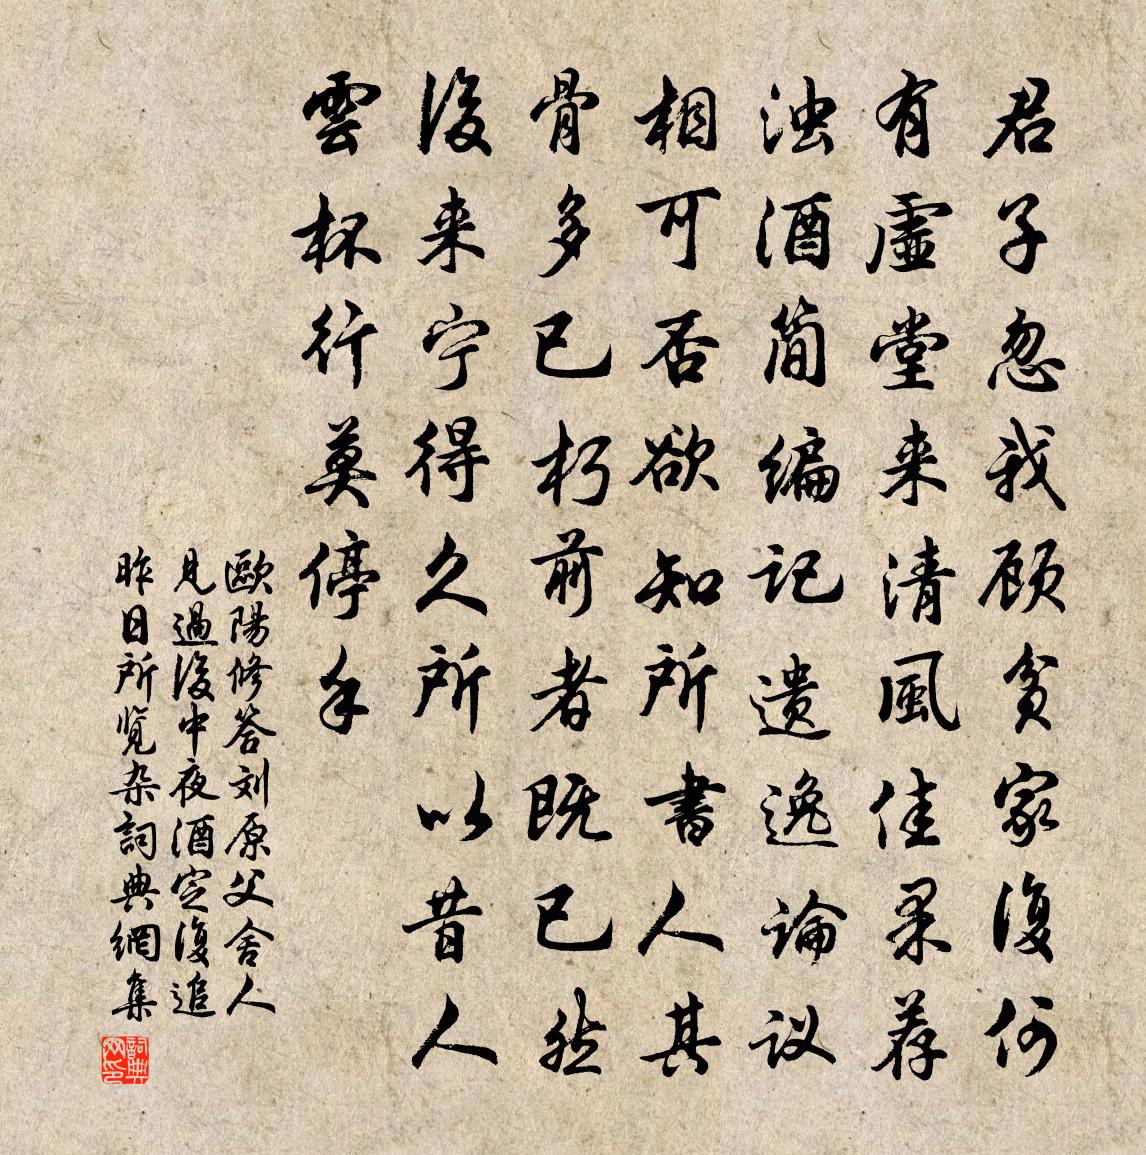 君子忽我顾贫家復何
有虚堂来清風佳果荐
浊酒简编记遗逸论议
相可否欲知所書人其
骨多已朽前者既已然
後来宁得久所以昔人
雲杯行莫停手
歐陽修答刘原父舍人
見過後中夜酒定復追
昨日所览杂詞典網集
詞典网印